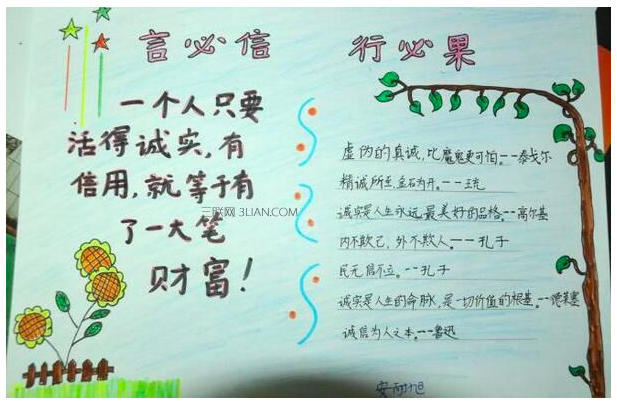 言必信 行必果
一个人只要
活得诚实，有
信用，就等于有
了一大笔
财富！
三联网 3LIAN.COM
虚伪的真诚，比魔鬼更可怕。--泰戈尔
精诚所至，金石为开。--王充
诚实是人生永远最美好的品格。--高尔基
内不欺己，外不欺人。--孔子
民无信不立。--孔子
诚实是人生的命脉，是一切价值的根基。--德莱塞
诚信为人之本。--鲁迅